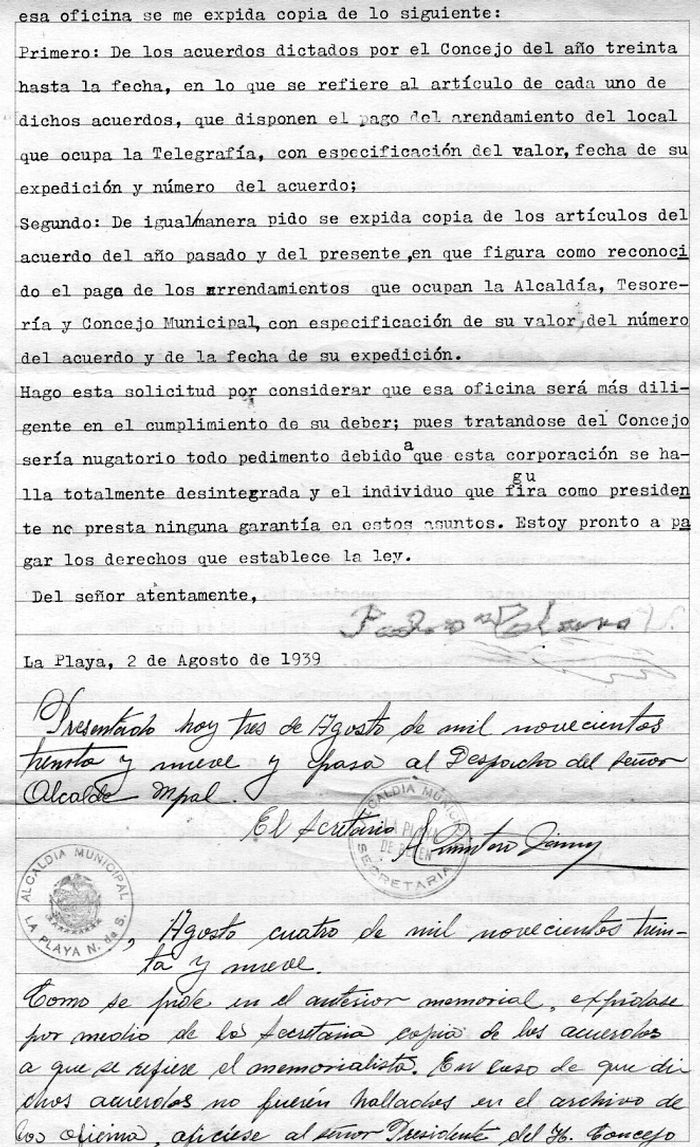 esa oficina se me expida copia de lo siguiente:
Primero: De los acuerdos dictados por el Concejo del año treinta
hasta la fecha, en lo que se refiere al artículo de cada uno de
dichos acuerdos, que disponen el pago del arendamiento del local
que ocupa la Telegrafía, con especificación del valor, fecha de su
expedición y número del acuerdo;
Segundo: De igual/manera pido se expida copia de los artículos del
acuerdo del año pasado y del presente ,en que figura como reconoci
do el paga de los arrendamientos que ocupan la Alcaldía, Tesore-
ría y Concejo Municipal, con especificación de su valor,del número
del acuerdo y de la fecha de su expedición.
Hago esta solicitud por considerar que esa oficina será más dili-
gente en el cumplimiento de su deber; pues tratandose del Concejo
sería nugatorio todo pedimento debido a que esta corporación se ha-
gu
lla totalmente desintegrada y el individuo que fira como presiden
te no presta ninguna garantía en estos asuntos. Estoy pronto a pa
gar los derechos que establece la ley.
Del señor atentamente,
La Playa, 2 de Agosto de 1939
Presentado hoy tres de Agosto de mil novecientos
treinta y nueve y pasa al Despacho del señor
Alcalde Mpal.
El Scretario
ALCALDIA MUNICIPAL
LA PLAYA
DE BELEN
SECRETARIA
ALCALDIA MUNICIPAL
LA PLAYA N. de S.
, Agosto cuatro de mil novecientos trein-
ta y nueve.
Como se pide en el anterior memorial, expídase
por medio de la Secretaria copia de los acuerdos
a que se refiere el memorialista. En caso de que di
chos acuerdos no fueren hallados en el archivo de
la oficina, ofíciese al señor Presidente del H. Concejo